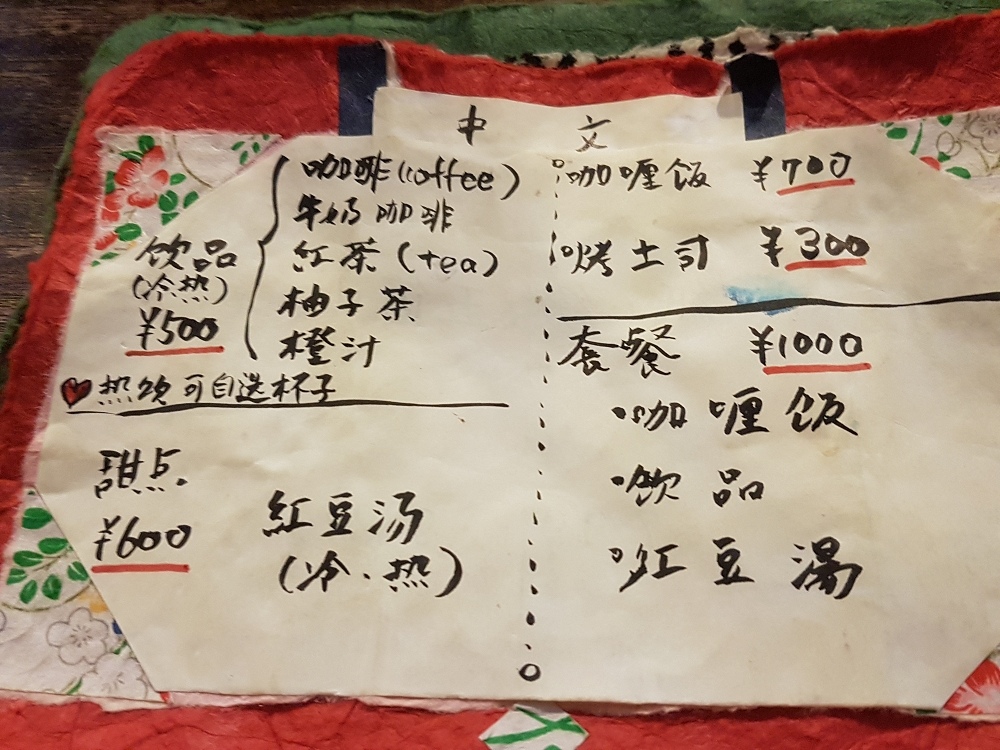 中 文
咖啡(coffee)
牛奶咖啡
紅茶(tea)
柚子茶
橙汁
饮品
(冷热)
¥500
热饮可自选杯子
甜点
¥600
紅豆汤
(冷.热)
咖喱饭 ¥700
烤土司 ¥300
套餐 ¥1000
咖喱饭
饮品
红豆湯